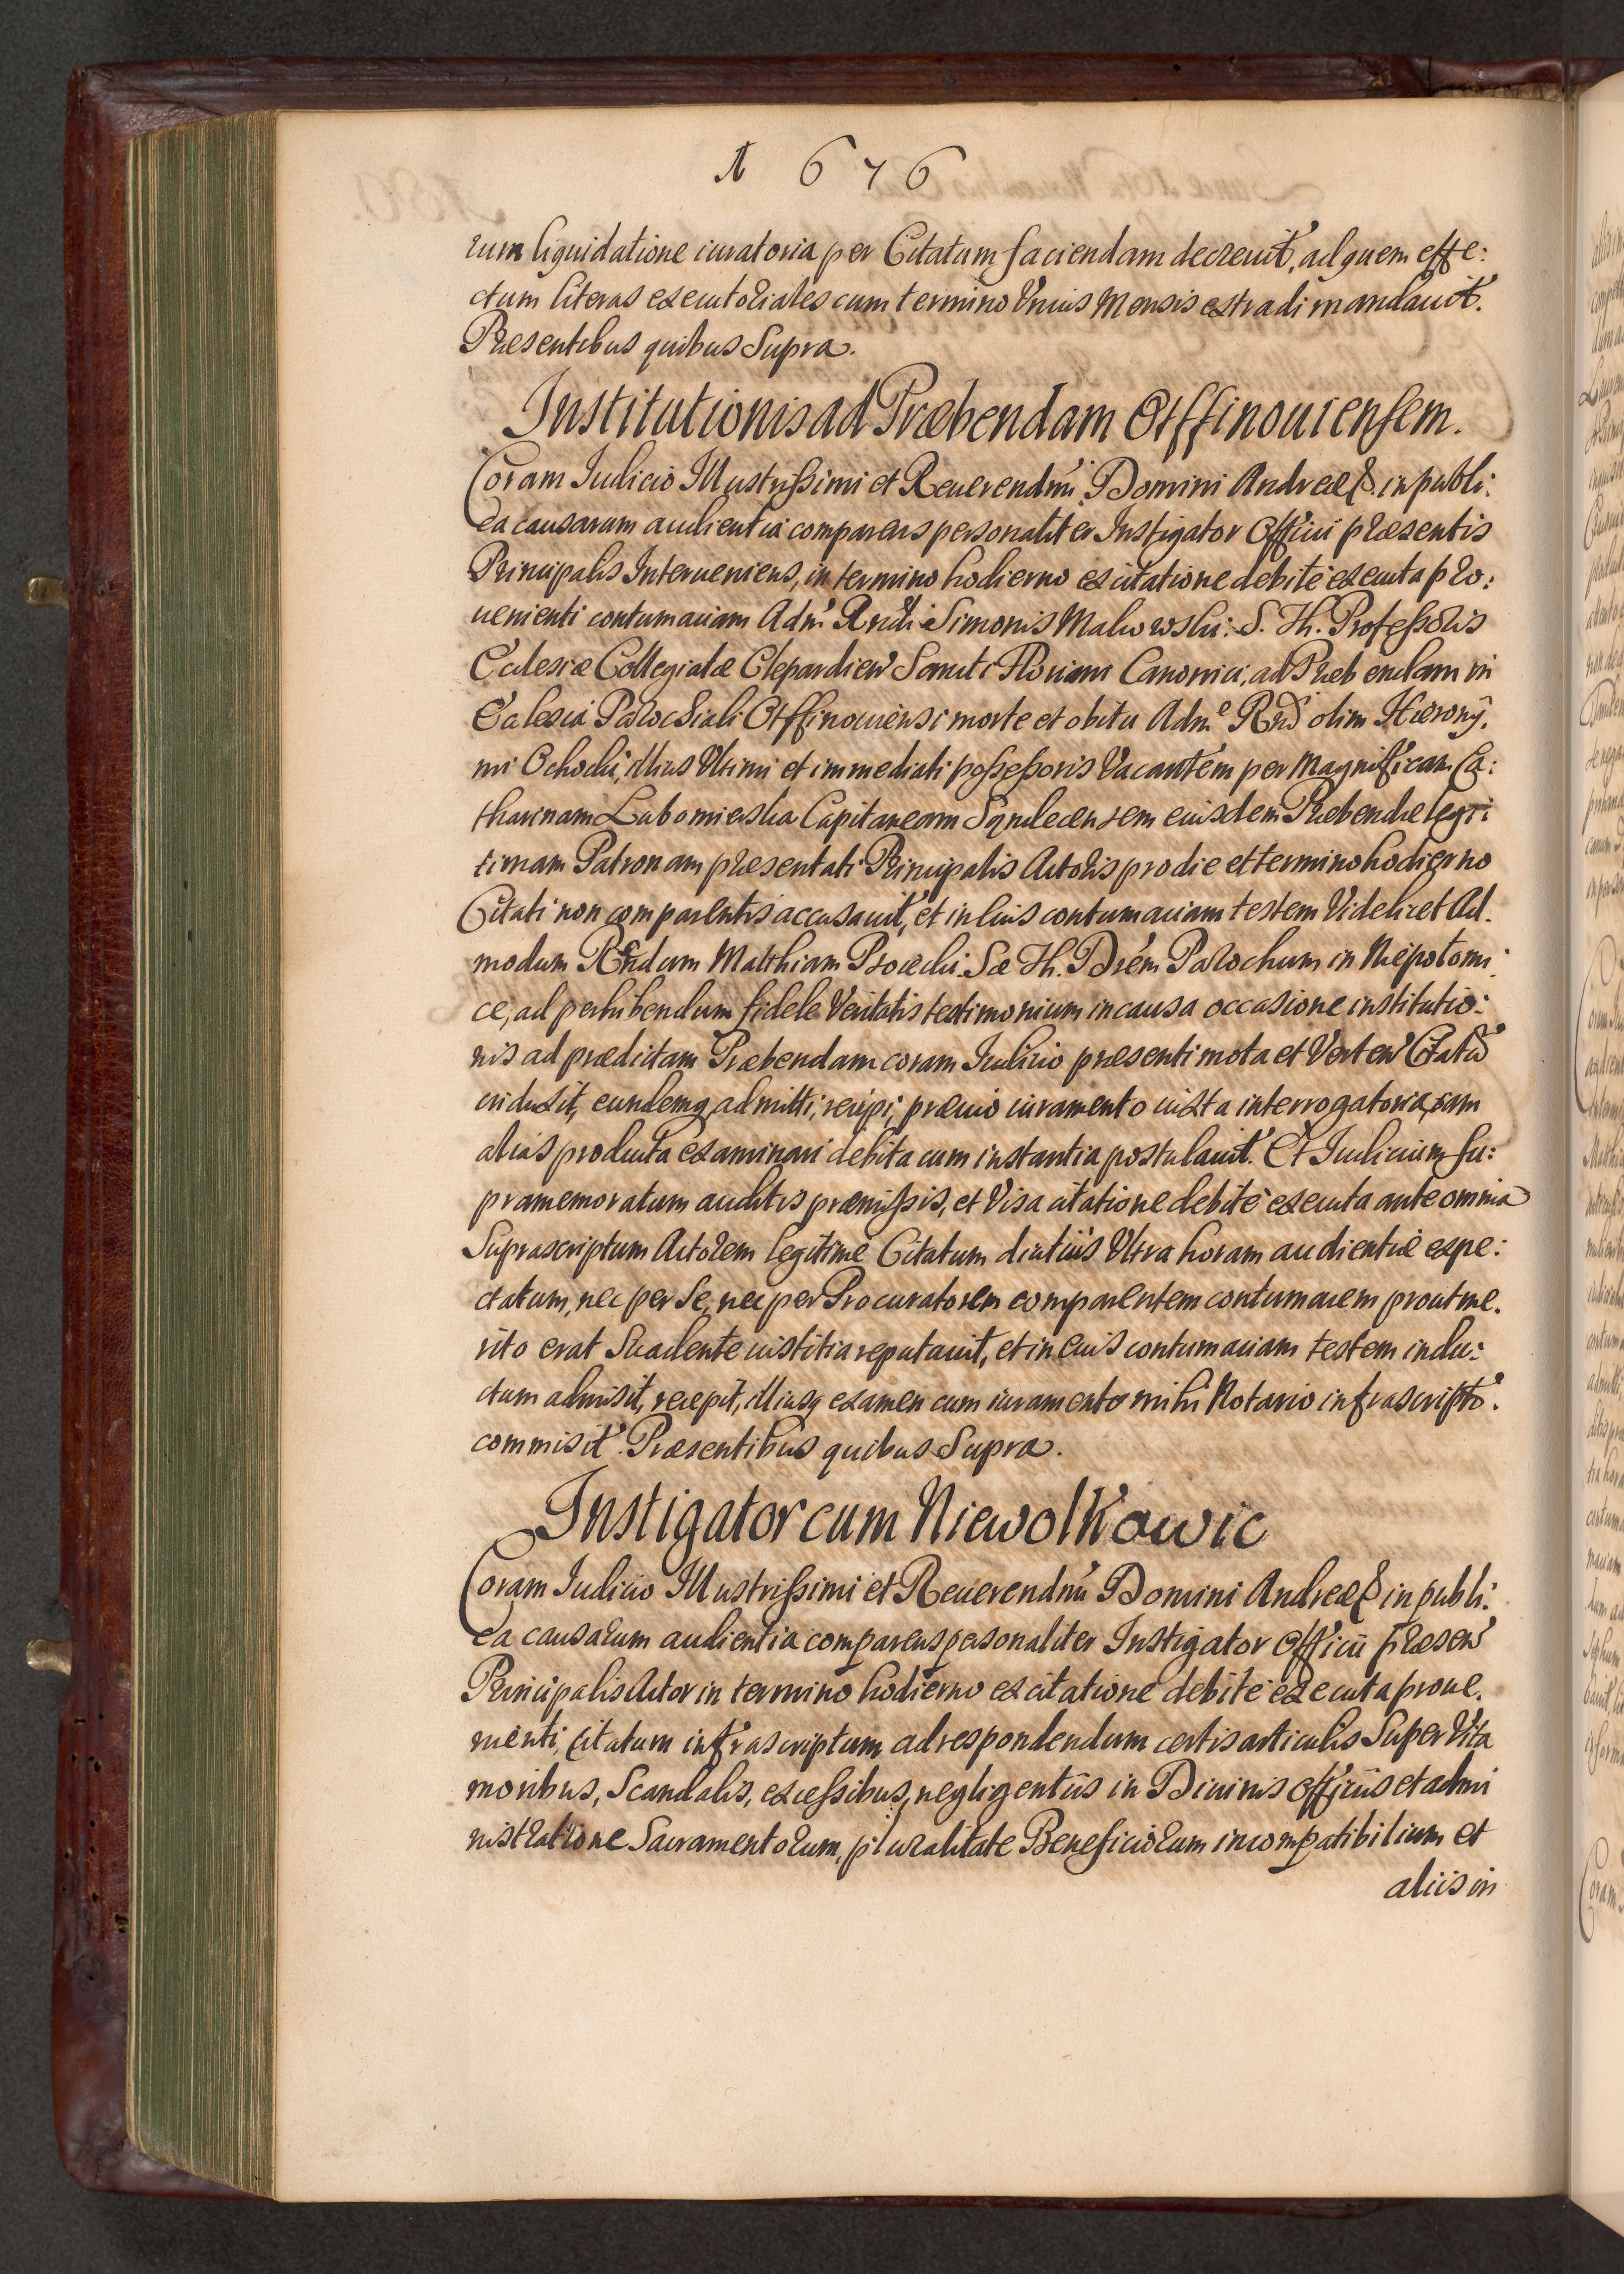 A 676
rum liquidatione iuratoria per Citatum faciendam decreuit, ad quem effe:
ctum literas executoriales cum termino Vnius Mensis extradi mandauit.
Præsentibus quibus Supra.
Institutionis ad Præbendam Offinouiensem.
Coram Iudicio Illustrissimi et Reuerendmi Domini Andreæ & in publi:
ca causarum audientia comparens personaliter Instigator Officii præsentis
Principalis Interueniens, in termino hodierno ex citatione debite executa pro:
uenienti contumaciam Adm Rndi Simonis S. Th. Professoris
Ecclesiæ Collegiatæ Clepardien Sancti Floriani Canonici, ad Præbendam in
Ecclesia Parochiali Offinouiensi morte et obitu Adm Rnd olim Hierony,
mi illius Vltimi et immediati possessoris Vacantem per Magnificam Ca:
tharinam Lubomirska Capitaneam Syndecensem eiusdem Præbendæ legi
timam Patronam præsentati Principalis Actoris pro die et termino hodierno
Citati non comparentis accusauit, et in eius contumaciam testem Videlicet Ad.
modum Rndum Matthiam Sæ Th. Drem Parochum in Niepolomi
ce, ad perhibendum fidele Veritatis testimonium in causa occasione institutio:
nis ad prædictam Præbendam coram Iudicio præsenti mota et Verten Citatu
induxit, eundemq admitti, recipi, præuio iuramento iuxta interrogatoria, eam
alias producta examinari debita cum instantia postulauit. Et Iudicium su:
pramemoratum auditis præmissis, et Visa citatione debite executa ante omnia
Suprascriptum Actorem legitime Citatum diutius Vltra horam audientiæ expe:
ctatum, nec per Se, nec per Procuratorem comparentem contumacem prout me.
rito erat Suadente iustitia reputauit, et in eius contumaciam testem indu:
ctum admisit, recepit, illiusq examen cum iuramento mihi Notario infrascripto.
commisit. Præsentibus quibus Supra.
Instigator cum Niewolkowic
Coram Iudicio Illustrissimi et Reuerendmi Domini Andreæ & in publi:
ca causarum audientia comparens personaliter Instigator Officii præsen
Principalis Actor in termino hodierno ex citatione debite executa proue.
nienti, citatum infrascriptum ad respondendum certis articulis Super Vita
moribus, Scandalis, excessibus, negligentiis in Diuinis officiis et admi
nistratione Sacramentorum, pluralitate Beneficiorum incompatibilium et
aliis in